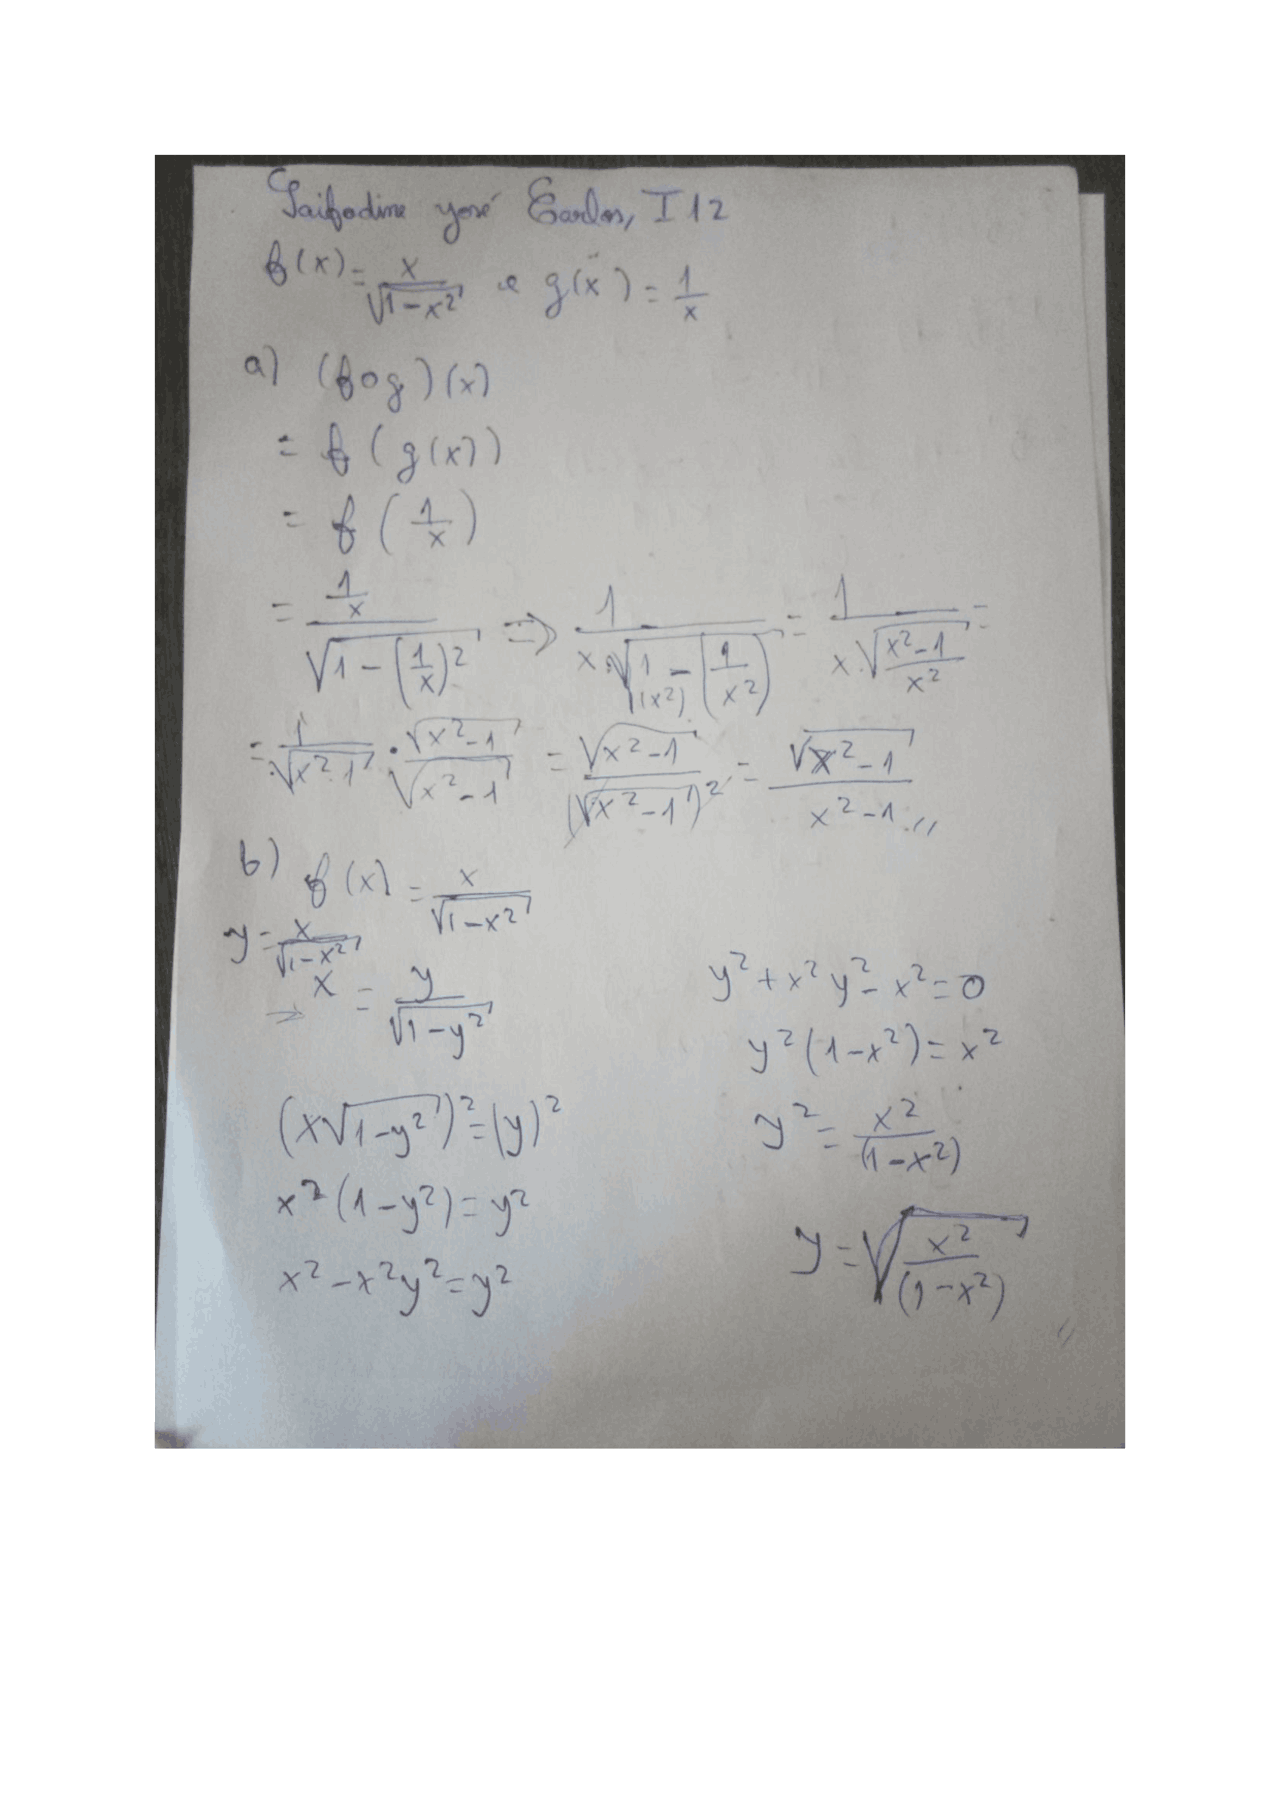 Saifodine José Carlos, I 12
f(x) = x/√(1-x²) e g(x) = 1/x
a) (fog)(x)
= f(g(x))
= f(1/x)
= (1/x)/√(1-(1/x)²) => 1/(x·√(1/(x²) - (1/x²))) = 1/(x·√((x²-1)/x²)) =
= 1/√(x²-1) · √(x²-1)/√(x²-1) = √(x²-1)/(√(x²-1))² = √(x²-1)/(x²-1) //
b) f(x) = x/√(1-x²)
y = x/√(1-x²)
=> x = y/√(1-y²)
(x√(1-y²))² = (y)²
x²(1-y²) = y²
x²-x²y² = y²
y²+x²y²-x² = 0
y²(1-x²) = x²
y² = x²/(1-x²)
y = √(x²/(1-x²)) //